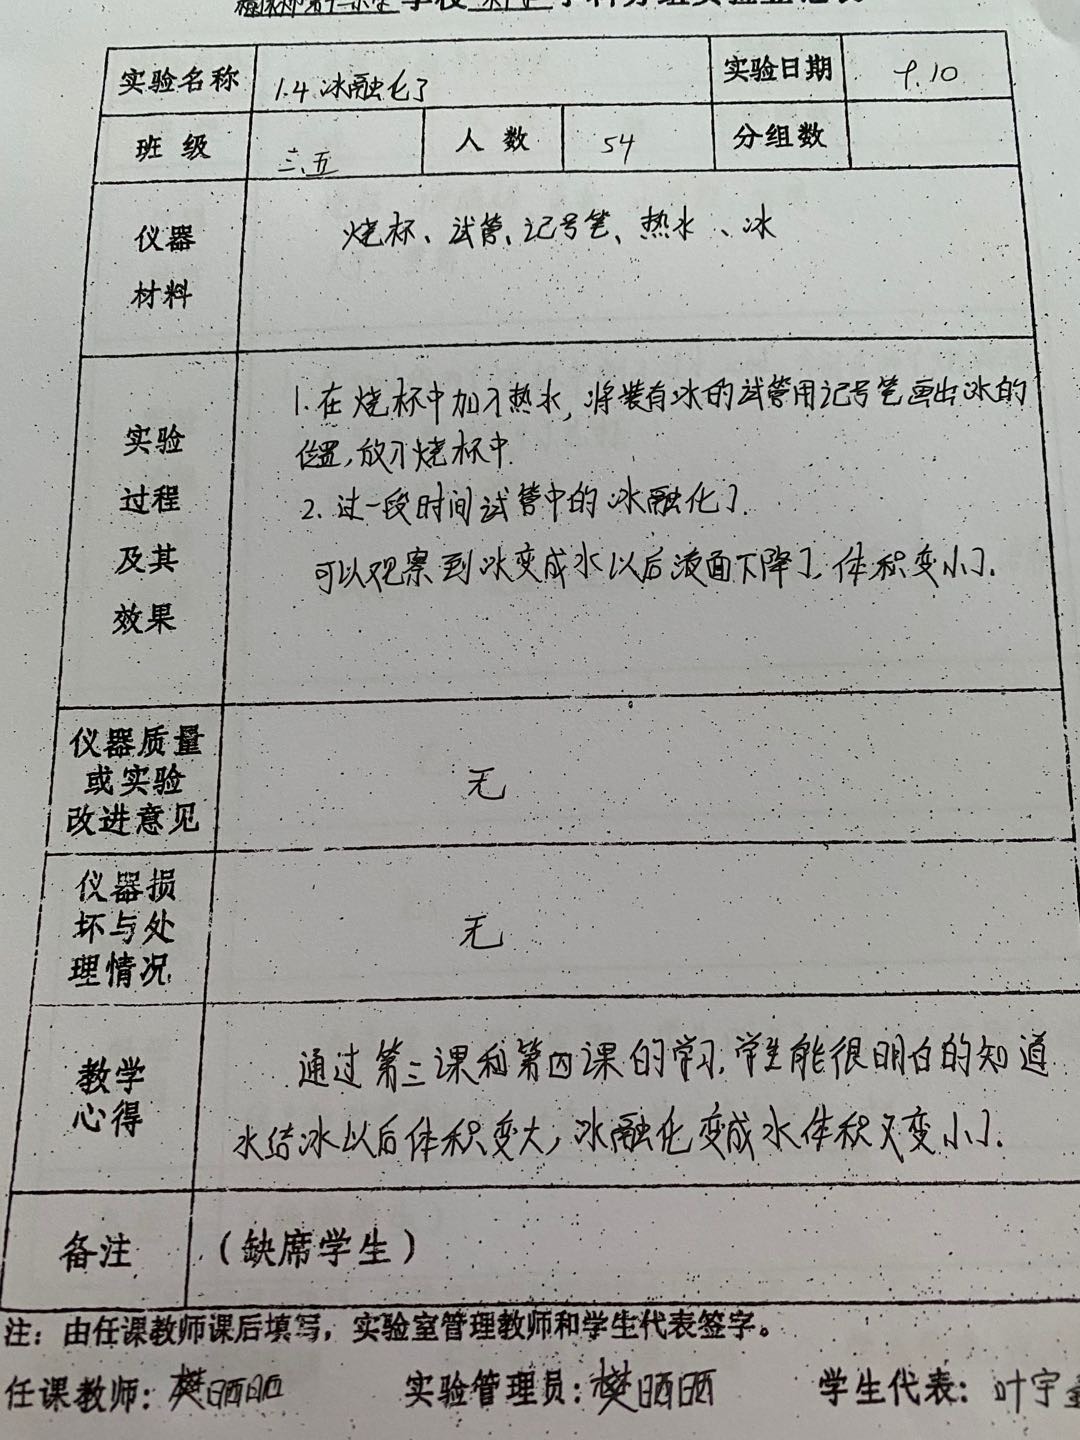 学校 学科分组实验登记表
实验名称 1.4 冰融化了 实验日期 9.10
班级 三、五 人数 54 分组数
仪器材料 烧杯、试管、记号笔、热水、冰
实验过程及其效果
1.在烧杯中加入热水,将装有冰的试管用记号笔画出冰的
位置,放入烧杯中.
2.过一段时间试管中的冰融化了.
可以观察到冰变成水以后液面下降了,体积变小了.
仪器质量或实验改进意见 无
仪器损坏与处理情况 无
教学心得
通过第三课和第四课的学习,学生能很明白的知道
水结冰以后体积变大,冰融化变成水体积又变小了.
备注 (缺席学生)
注:由任课教师课后填写,实验室管理教师和学生代表签字。
任课教师:樊晒晒 实验管理员:樊晒晒 学生代表:叶宇